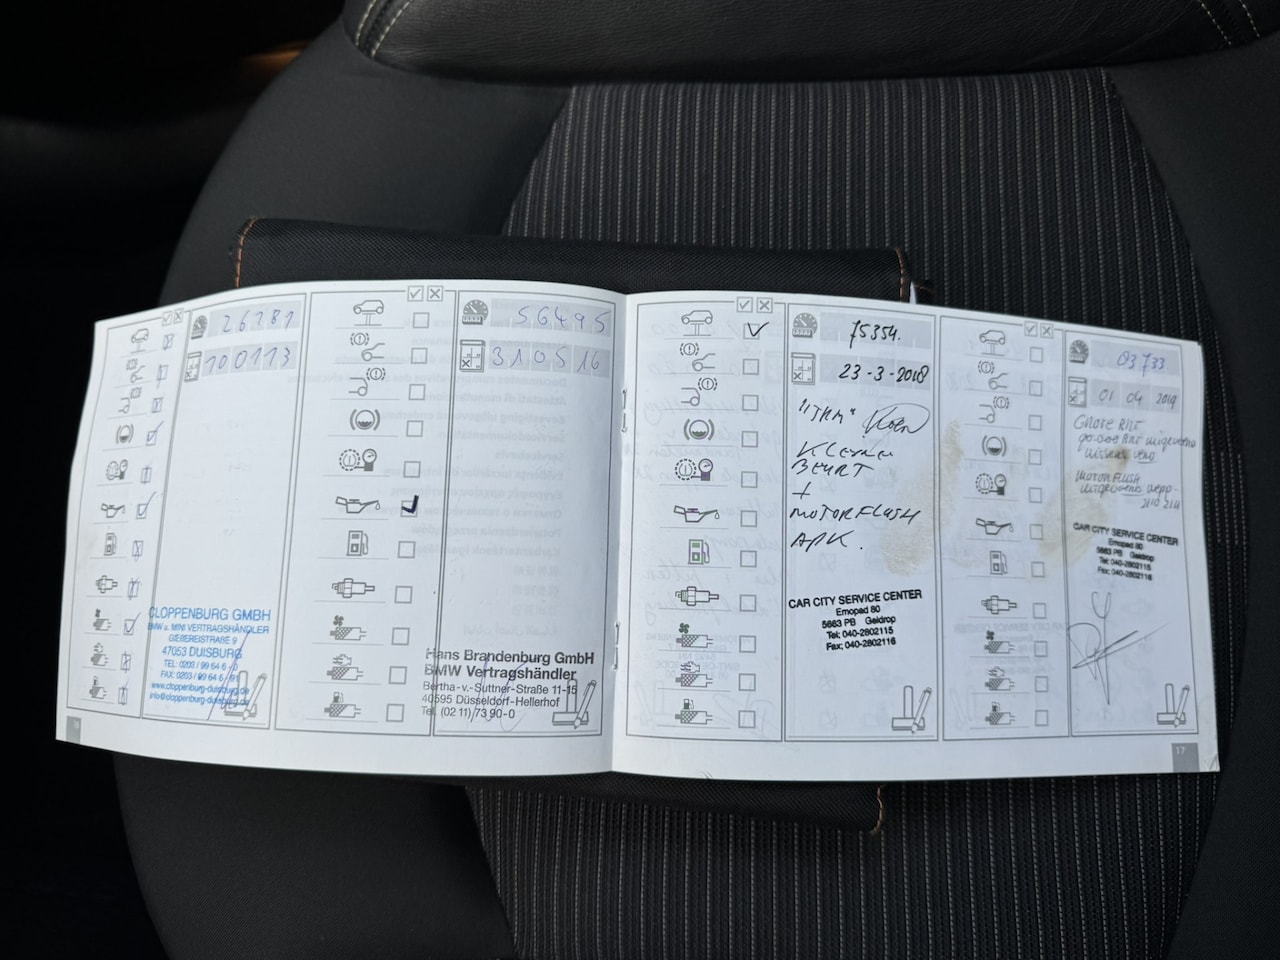 26781
100113
CLOPPENBURG GMBH
BMW u. MINI VERTRAGSHÄNDLER
GIEßEREISTRAßE 9
47053 DUISBURG
TEL: 0203 / 99 64 6 - 0
FAX: 0203 / 99 64 6 - 91
www.cloppenburg-duisburg.de
info@cloppenburg-duisburg.de
56495
310516
Hans Brandenburg GmbH
BMW Vertragshändler
Bertha-v.-Suttner-Straße 11-15
40595 Düsseldorf-Hellerhof
Tel. (02 11) 73 90-0
75354.
23-3-2018
KLEINE
BEURT
+
MOTORFLUSH
APK.
CAR CITY SERVICE CENTER
Emopad 80
5663 PB Geldrop
Tel; 040-2802115
Fax; 040-2802116
93733
01 04 2019
GROTE BRT
90.000 BRT uitgevoerd
MOTORFLUSH
uitgevoerd
CAR CITY SERVICE CENTER
Emopad 80
5663 PB Geldrop
Tel; 040-2802115
Fax; 040-2802116
17